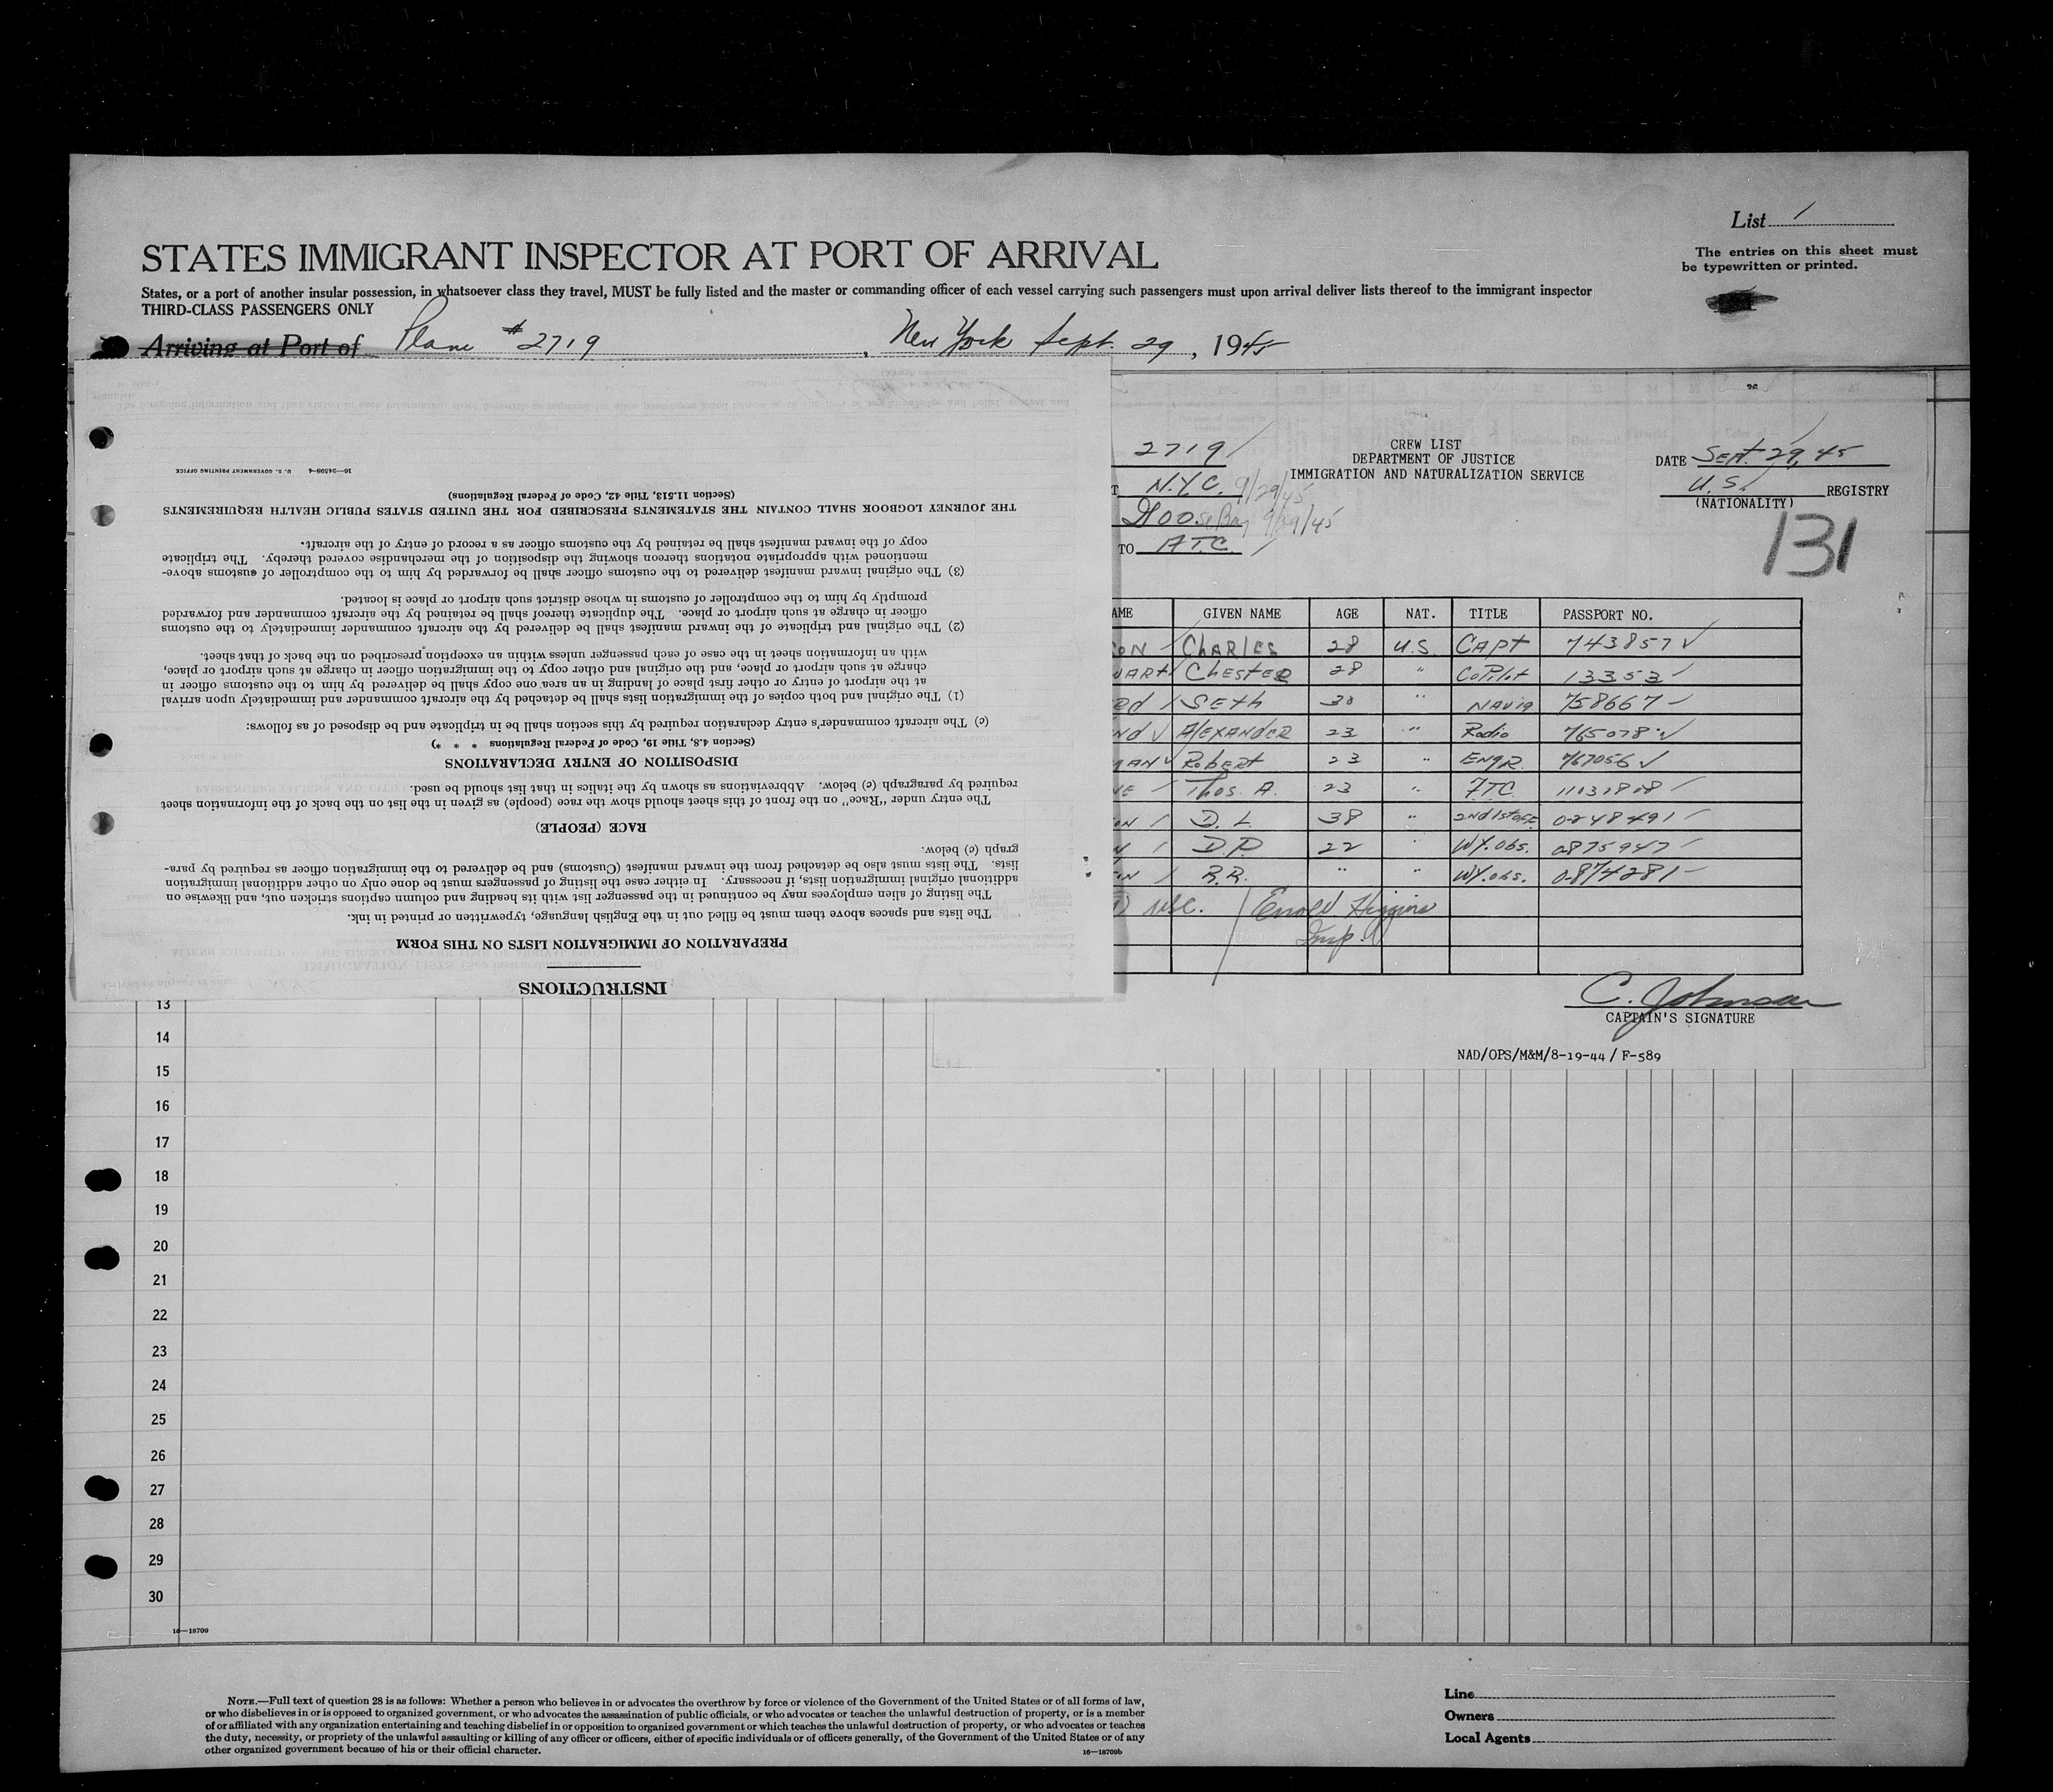 List 1
The entries on this sheet must
be typewritten or printed.
STATES IMMIGRANT INSPECTOR AT PORT OF ARRIVAL
States, or a port of another insular possession, in whatsoever class they travel, MUST be fully listed and the master or commanding officer of each vessel carrying such passengers must upon arrival deliver lists thereof to the immigrant inspector
THIRD-CLASS PASSENGERS ONLY
Arriving at Port of Plane #2719, New York Sept. 29, 1945
INSTRUCTIONS
PREPARATION OF IMMIGRATION LISTS ON THIS FORM
The lists and spaces above them must be filled out in the English language, typewritten or printed in ink.
The listing of alien employees may be continued in the passenger list with its heading and column captions stricken out, and likewise on
additional original immigration lists, if necessary. In either case the listing of passengers must be done only on other additional immigration
lists. The lists must also be detached from the inward manifest (Customs) and be delivered to the immigration officer as required by para-
graph (c) below.
RACE (PEOPLE)
The entry under "Race" on the front of this sheet should show the race (people) as given in the list on the back of the information sheet
required by paragraph (c) below. Abbreviations as shown by the italics in that list should be used.
DISPOSITION OF ENTRY DECLARATIONS
(Section 4.8, Title 19, Code of Federal Regulations * * *)
(c) The aircraft commander's entry declaration required by this section shall be in triplicate and be disposed of as follows:
(1) The original and both copies of the immigration lists shall be detached by the aircraft commander and immediately upon arrival
at the airport of entry or other first place of landing in an area one copy shall be delivered by him to the customs officer in
charge at such airport or place, and the original and other copy to the immigration officer in charge at such airport or place,
with an information sheet in the case of each passenger unless within an exception prescribed on the back of that sheet.
(2) The original and triplicate of the inward manifest shall be delivered by the aircraft commander immediately to the customs
officer in charge at such airport or place. The duplicate thereof shall be retained by the aircraft commander and forwarded
promptly by him to the comptroller of customs in whose district such airport or place is located.
(3) The original inward manifest delivered to the customs officer shall be forwarded by him to the comptroller of customs above-
mentioned with appropriate notations thereon showing the disposition of the merchandise covered thereby. The triplicate
copy of the inward manifest shall be retained by the customs officer as a record of entry of the aircraft.
THE JOURNEY LOGBOOK SHALL CONTAIN THE STATEMENTS PRESCRIBED FOR THE UNITED STATES PUBLIC HEALTH REQUIREMENTS
(Section 11.513, Title 42, Code of Federal Regulations)
16—24598-4 U. S. GOVERNMENT PRINTING OFFICE
2719
CREW LIST
DEPARTMENT OF JUSTICE
IMMIGRATION AND NATURALIZATION SERVICE
DATE Sept. 29, 45
N.Y.C. 9/29/45
U.S. REGISTRY
(NATIONALITY)
Goose Bay 9/29/45
TO A.T.C.
131
AME GIVEN NAME AGE NAT. TITLE PASSPORT NO.
ON CHARLES 28 U.S. CAPT 743857
WART CHESTER 28 " CoPilot 13353
RD SETH 30 " NAVIG 758667
ND ALEXANDER 23 " Radio 765078
MAN Robert 23 " ENGR. 767056
NE Thos. A. 23 " FTC 11131808
ON D. L. 38 " 2ND 1ST OFF. 0-248491
N D.P. 22 " WX.obs. 0875947
ON R.R. " " WX.obs. 0-874281
Errold Higgins
Insp.
C. Johnson
CAPTAIN'S SIGNATURE
NAD/OPS/M&M/8-19-44 / F-589
13
14
15
16
17
18
19
20
21
22
23
24
25
26
27
28
29
30
16—18709
NOTE.—Full text of question 28 is as follows: Whether a person who believes in or advocates the overthrow by force or violence of the Government of the United States or of all forms of law,
or who disbelieves in or is opposed to organized government, or who advocates the assassination of public officials, or who advocates or teaches the unlawful destruction of property, or is a member
of or affiliated with any organization entertaining and teaching disbelief in or opposition to organized government or which teaches the unlawful destruction of property, or who advocates or teaches
the duty, necessity, or propriety of the unlawful assaulting or killing of any officer or officers, either of specific individuals or of officers generally, of the Government of the United States or of any
other organized government because of his or their official character.
16—18709b
Line
Owners
Local Agents